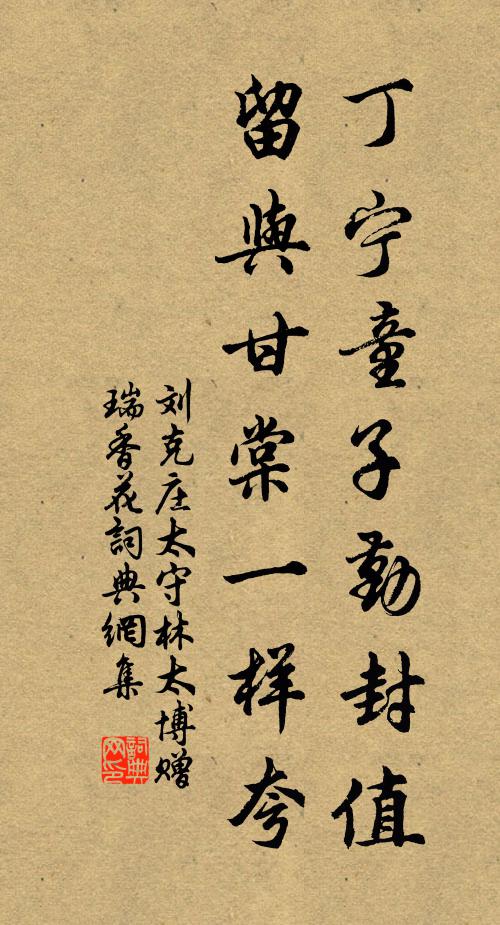 丁宁童子勤封值
留與甘棠一样夸
刘克庄太守林太博赠
瑞香花詞典網集
詞典
网印